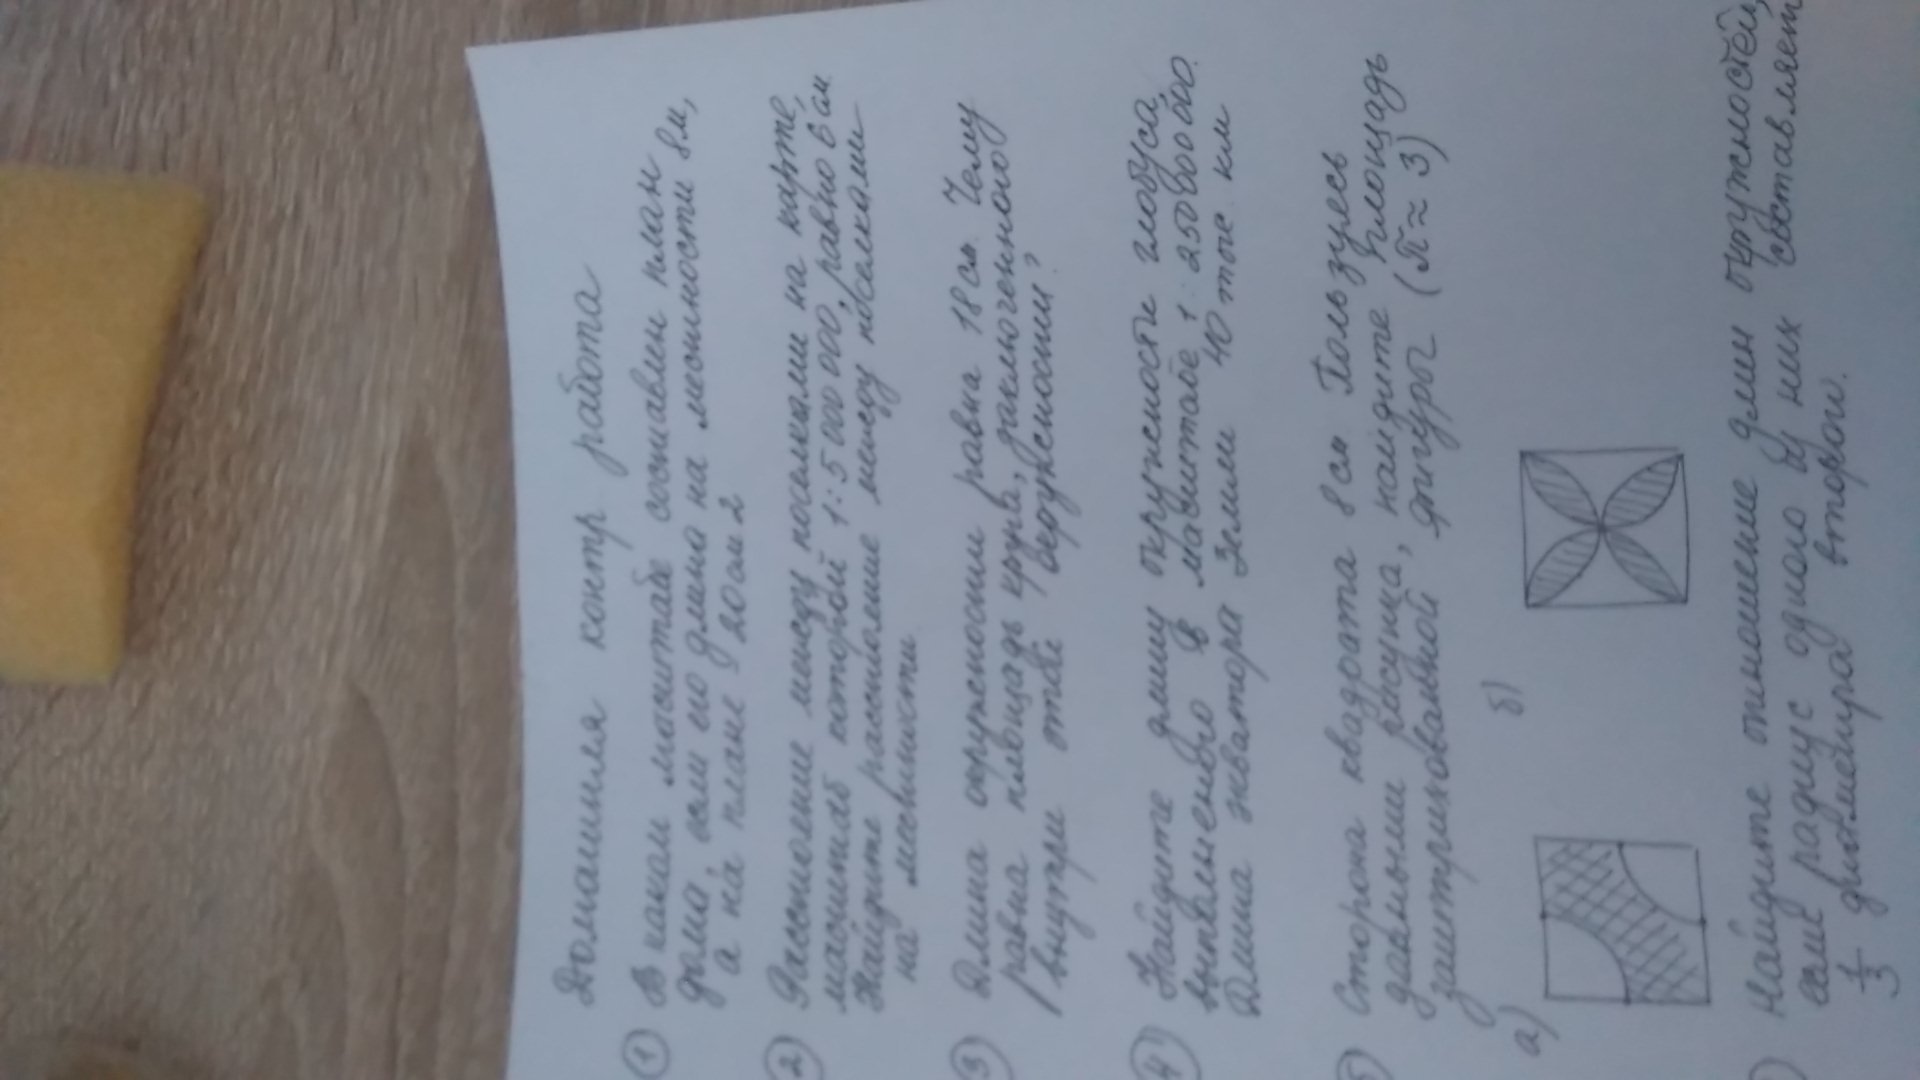 Домашняя контр работа
① В каком масштабе составлен план
дома, если его длина на местности 8м,
а на плане 20см?
② Расстояние между поселками на карте,
масштаб которой 1:5 000 000, равно 6 см
Найдите расстояние между поселками
на местности
③ Длина окружности равна 18см. Чему
равна площадь круга, заключенного
внутри этой окружности?
④ Найдите длину окружности глобуса,
выполненного в масштабе 1:250 000 000.
Длина экватора Земли 40 тыс. км
5 Сторона квадрата 8см Пользуясь
данными рисунка, найдите площадь
заштрихованной фигуры (π ≈ 3)
а) б)
Найдите отношение длин окружностей,
если радиус одной из них составляет
1/3 диаметра второй.